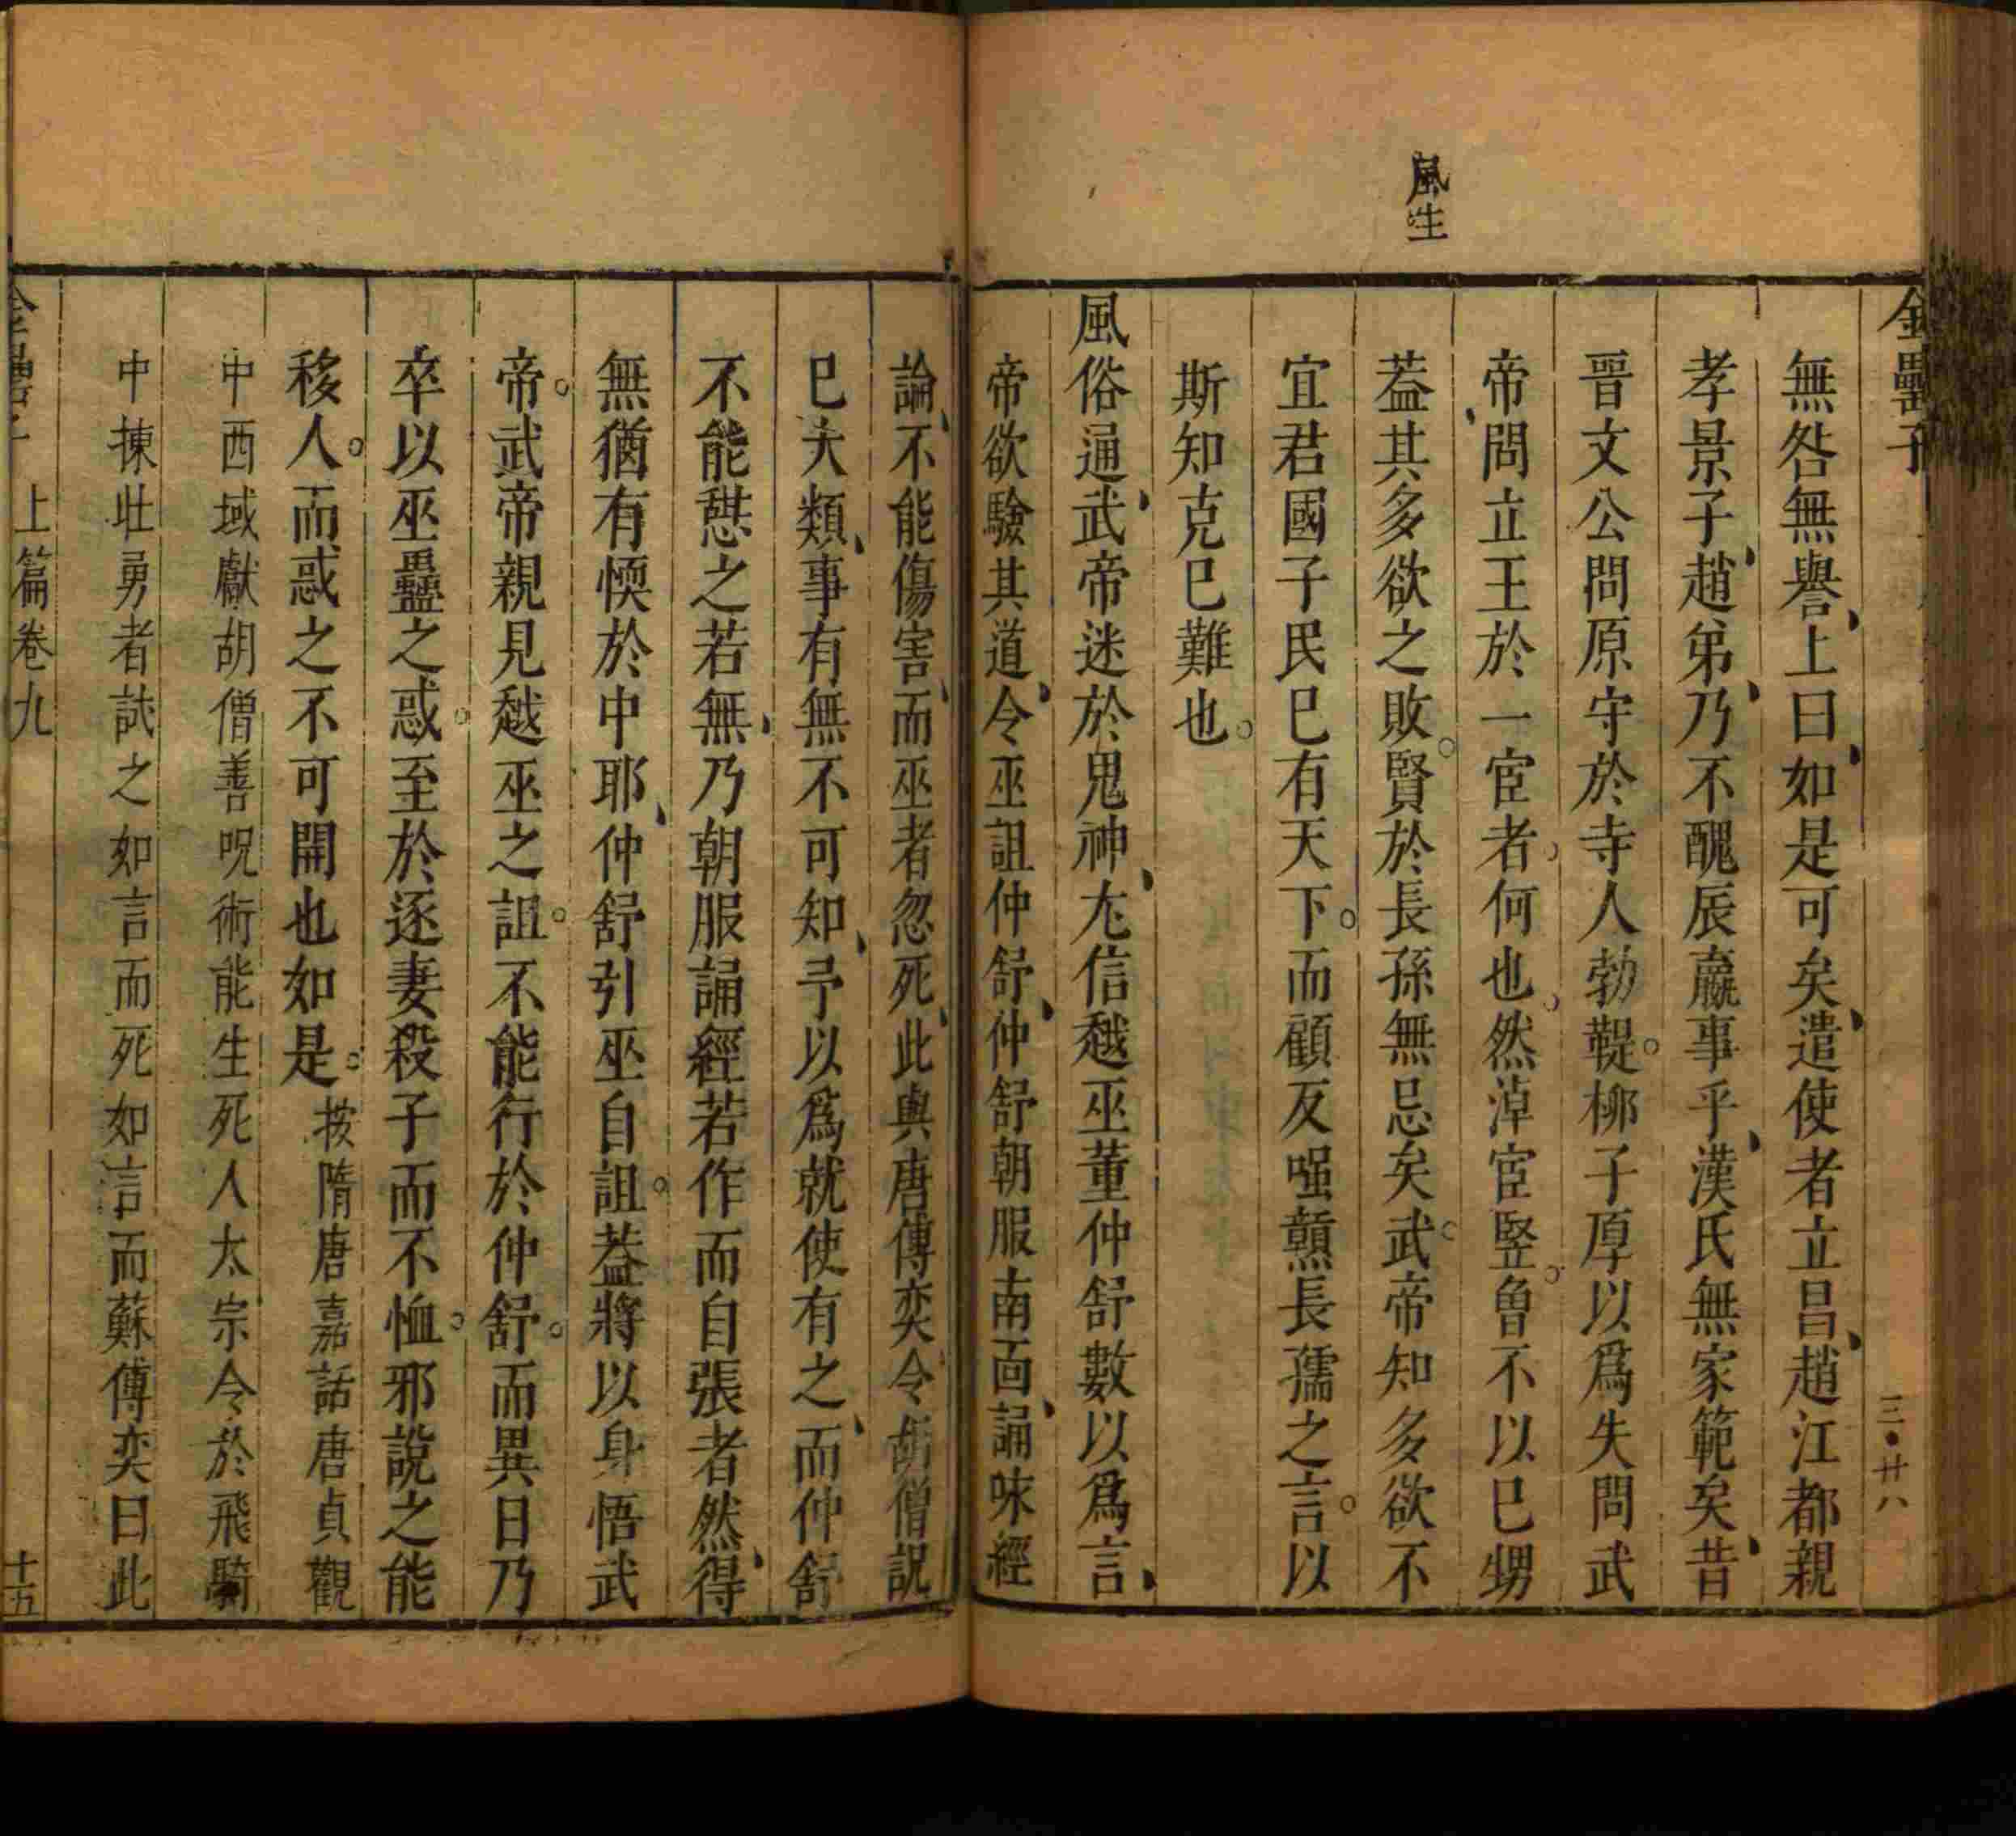 金罍子
三·廿八
風生
無咎無譽上曰如是可矣遣使者立昌趙江都親
孝景子趙弟乃不醜辰嬴事乎漢氏無家範矣昔
晉文公問原守於寺人勃鞮柳子厚以爲失問武
帝問立王於一宦者何也然淖宦竪魯不以已甥
葢其多欲之敗賢於長孫無忌矣武帝知多欲不
宜君國子民已有天下而顧反嗤戇長孺之言以
斯知克已難也
風俗通武帝迷於鬼神尤信越巫董仲舒數以爲言
帝欲驗其道令巫詛仲舒仲舒朝服南面誦咏經
論不能傷害而巫者忽死此與唐傅奕令胡僧說
已大類事有無不可知予以爲就使有之而仲舒
不能慭之若無乃朝服誦經若作而自張者然得
無猶有愞於中耶仲舒引巫自詛葢將以身悟武
帝武帝親見越巫之詛不能行於仲舒而異日乃
卒以巫蠱之惑至於逐妻殺子而不恤邪說之能
移人而惑之不可開也如是按隋唐嘉話唐貞觀
中西域獻胡僧善呪術能生死人太宗令於飛騎
中揀壯勇者試之如言而死如言而蘇傅奕曰此
上篇卷九
十五